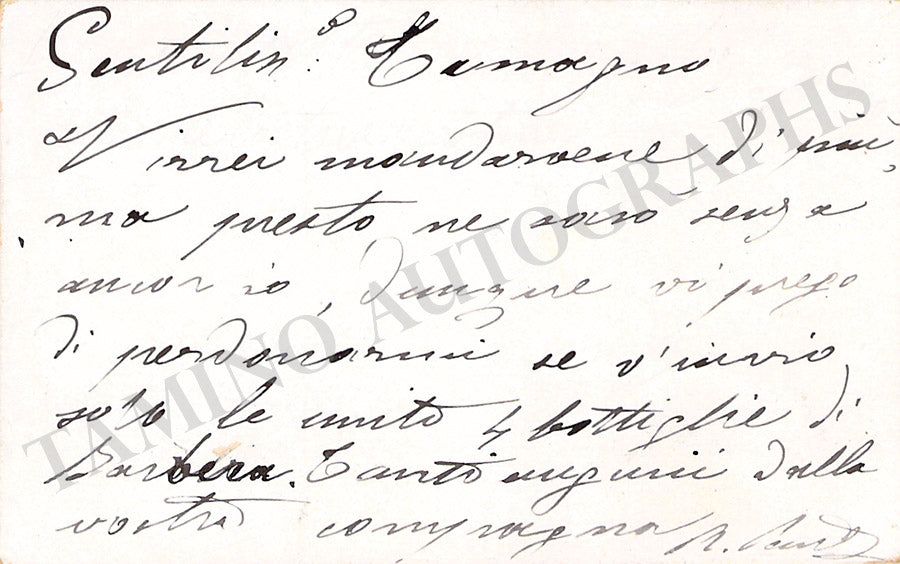 Gentilis.º Tamagno
Virrei mandarvene di più,
ma presto ne sarò senza
ancor io, dunque vi prego
di perdonarmi se v'invio
solo le unite 4 bottiglie di
Barbera. Tanti auguri dalla
vostra compagna R.
TAMINO AUTOGRAPHS